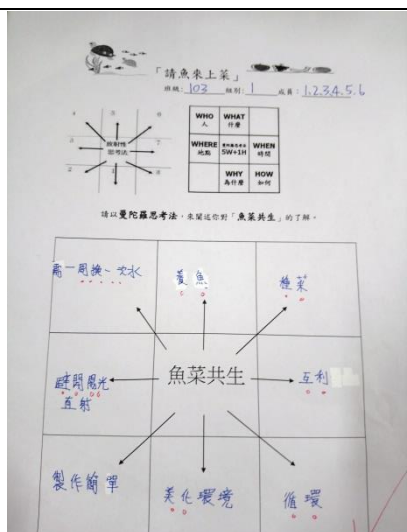 「請魚來上菜」
班級：103 組別：1 成員：1.2.3.4.5.6
4 5 6
3 放射性思考法 7
2 1 8
WHO 人
WHAT 什麼
WHERE 地點
5W+1H
WHEN 時間
WHY 為什麼
HOW 如何
請以曼陀羅思考法，來闡述你對「魚菜共生」的了解。
需一周換一次水
養魚
種菜
避開陽光
直射
魚菜共生
互利
製作簡單
美化環境
循環